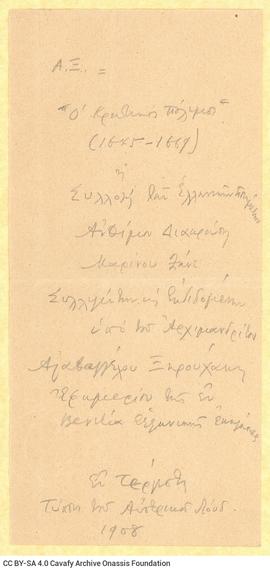 Α.Ξ. =
"Ο Κρητικός Πόλεμος"
(1645-1669)
ή
Συλλογή των Ελληνικών ποιημάτων
Ανθίμου Διακρούση
Μαρίνου Ζάνε
Συλλεγέντων και εκδιδομένων
υπό του Αρχιμανδρίτου
Αγαθαγγέλου Ξηρουχάκη
Εφημερίου της εν
Βενετία Ελληνικής Εκκλησίας
Εν Τεργέστη
Τύποις του Αυστριακού Λόυδ
1908
CC BY-SA 4.0 Cavafy Archive Onassis Foundation